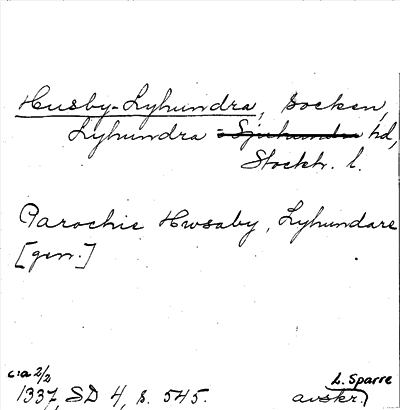 Husby-Lyhundra, socken,
Lyhundra hd,
Stockh. l.
Parochie Hwsaby, Lyhundare
[gen.]
c:a 2/2
1337, SD 4, s. 545.
L. Sparre
avskr.)